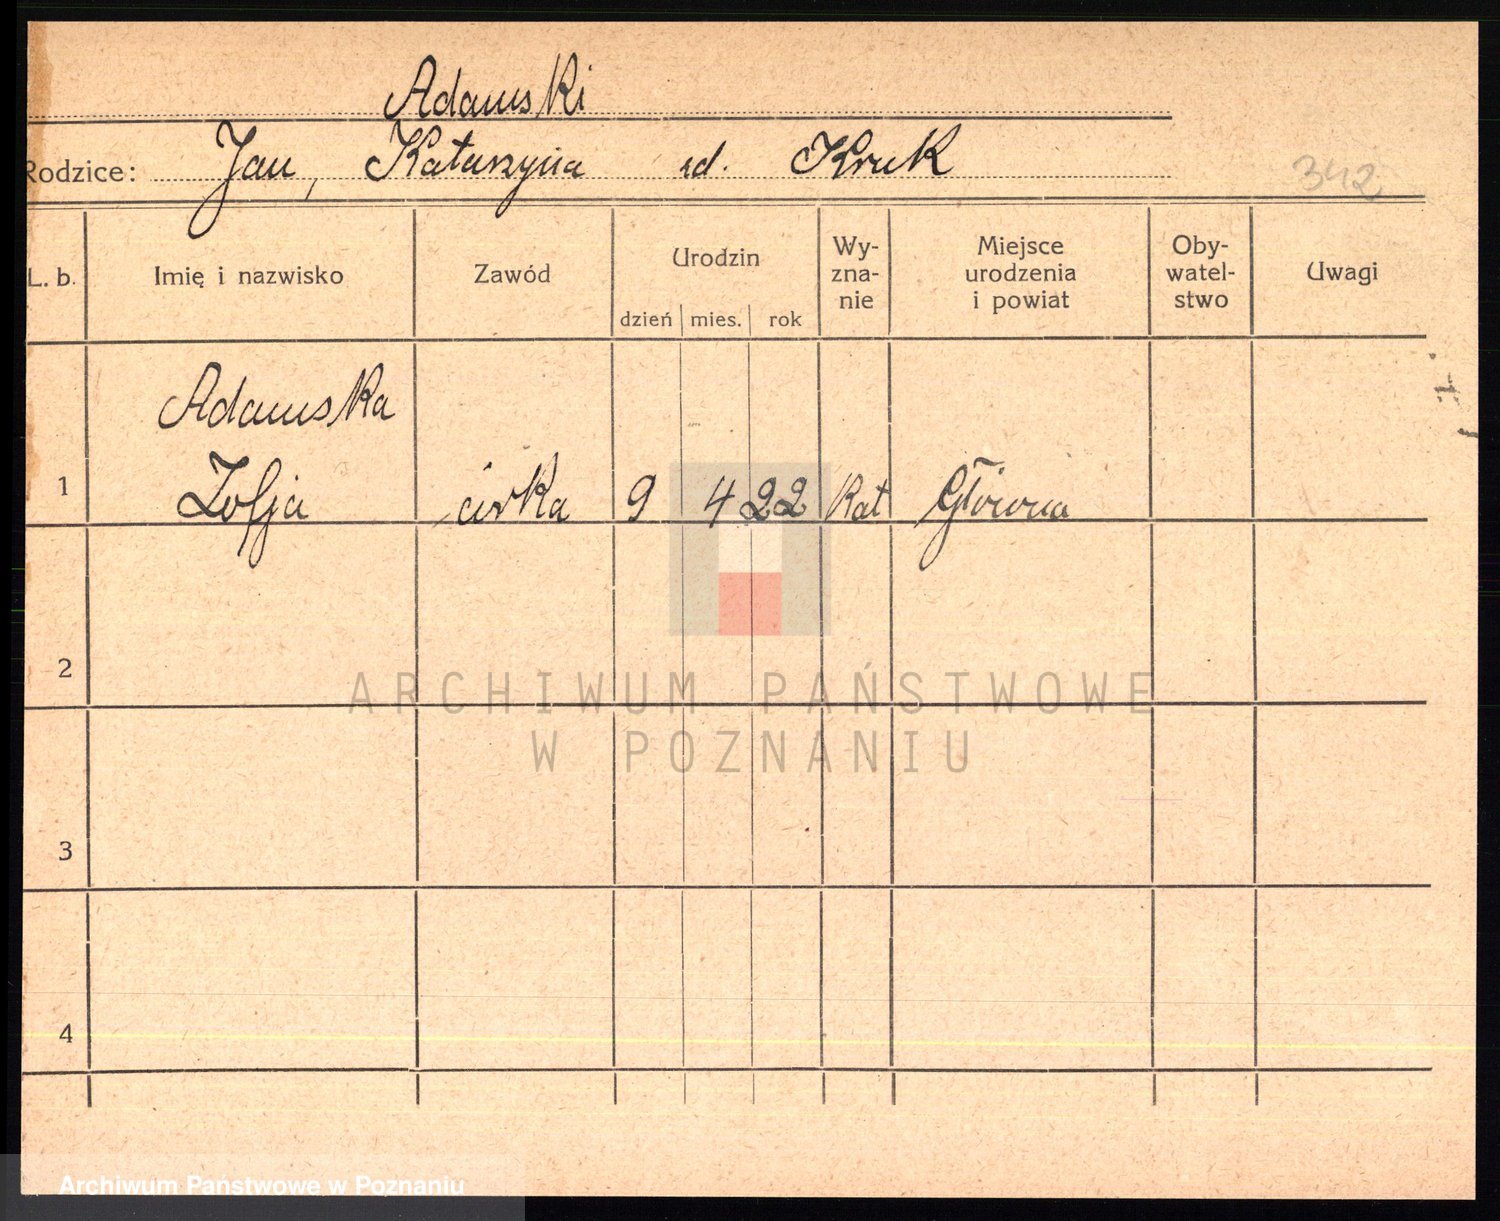 Adamski
Rodzice: Jan, Katarzyna zd. Kruk
342
L. b. Imię i nazwisko Zawód Urodzin dzień mies. rok Wy-zna-nie Miejsce urodzenia i powiat Oby-watel-stwo Uwagi
Adamska
1 Zofja córka 9 4 22 Kat Główna
2
ARCHIWUM PAŃSTWOWE
W POZNANIU
3
4
Archiwum Państwowe w Poznaniu